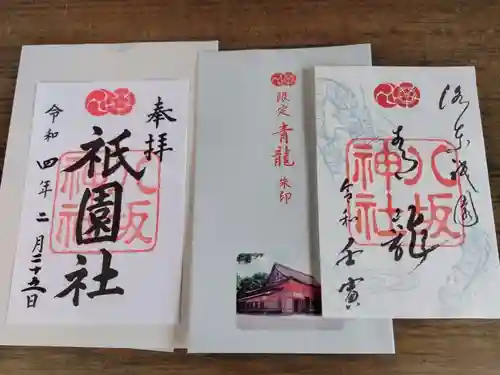 奉拝
八坂神社
祇園社
令和四年二月二十五日
限定
青龍
朱印
洛東祇園
八坂神社
青龍
令和壬寅